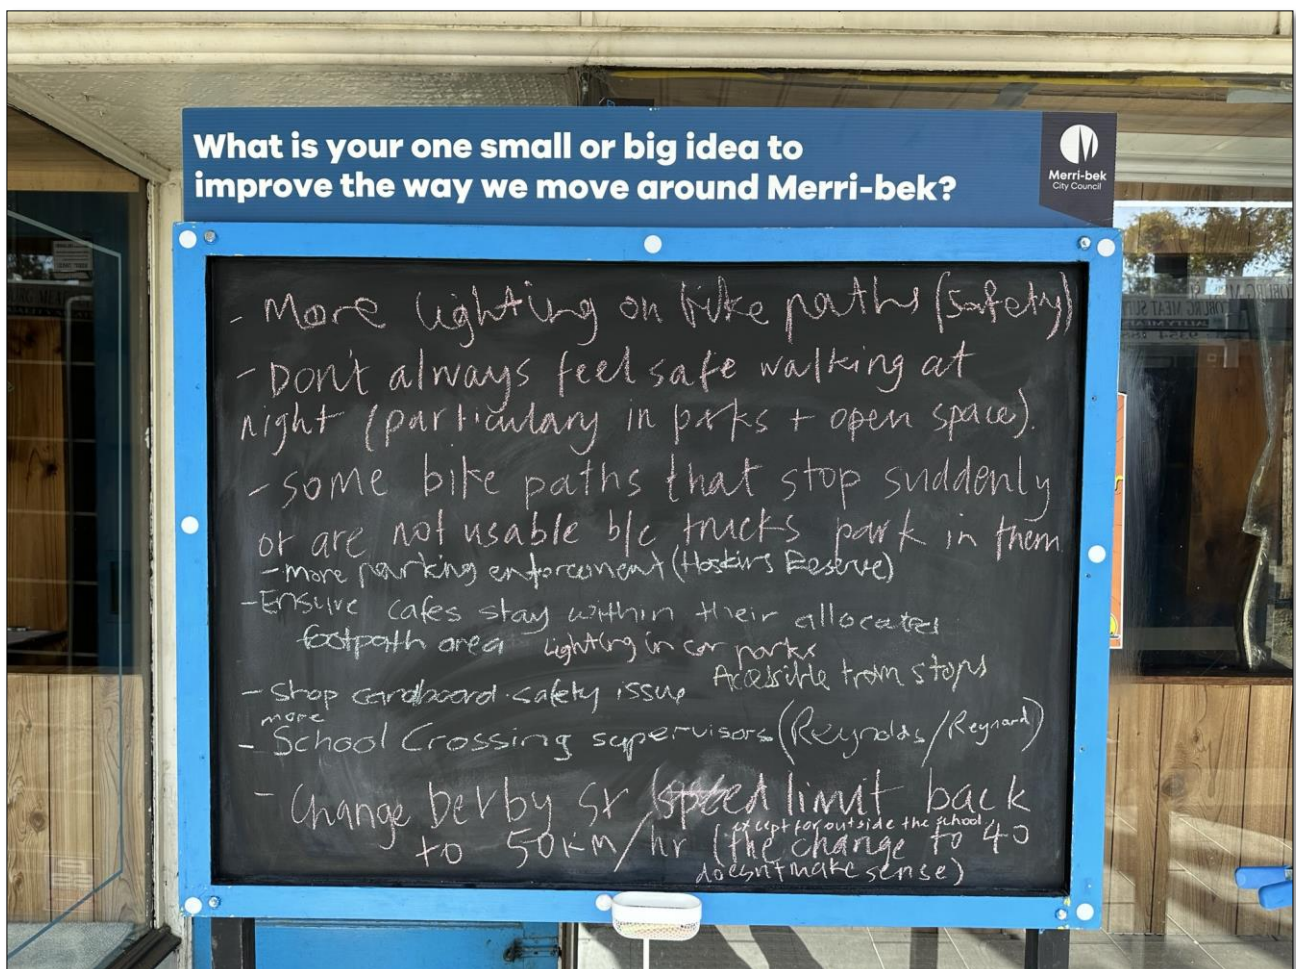 What is your one small or big idea to
improve the way we move around Merri-bek?
Merri-bek
City Council
- More lighting on bike paths (Safety)
- Don't always feel safe walking at
night (particulary in parks + open space).
- some bike paths that stop suddenly
or are not usable b/c trucks park in them
- more parking enforcement (Hoskins Reserve)
- Ensure cafes stay within their allocated
footpath area
Lighting in car parks
Acessible tram stops
- Shop cardboard safety issue
more
- School Crossing supervisors (Reynolds/Reynard)
- Change Derby St speed limit back
to 50km/hr (the change to 40
except for outside the school
doesn't make sense)